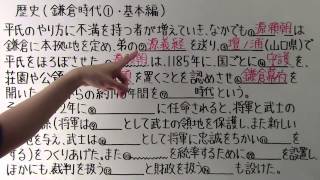 歴史(鎌倉時代①・基本編)
平氏のやり方に不満を持つ者が増えていき、なかでも㋐源頼朝は
鎌倉に本拠地を定め、弟の㋑源義経を送り、㋒壇ノ浦(山口県)で
平氏をほろぼさせた。は、1185年に、国ごとに㋓守護を、
荘園や公領を置くことを認めさせ㋕鎌倉幕府を
開いた。からの約年間を時代という。
2年にに任命されると、将軍と武士の
係(将軍はとして武士の領地を保護し、また新しい
地を与え、武士はとして将軍に忠誠をちかい
する)をつくりあげた。またを統率するためにを設置し、
ほかにも、裁判を扱うと財政を扱うも設けた。